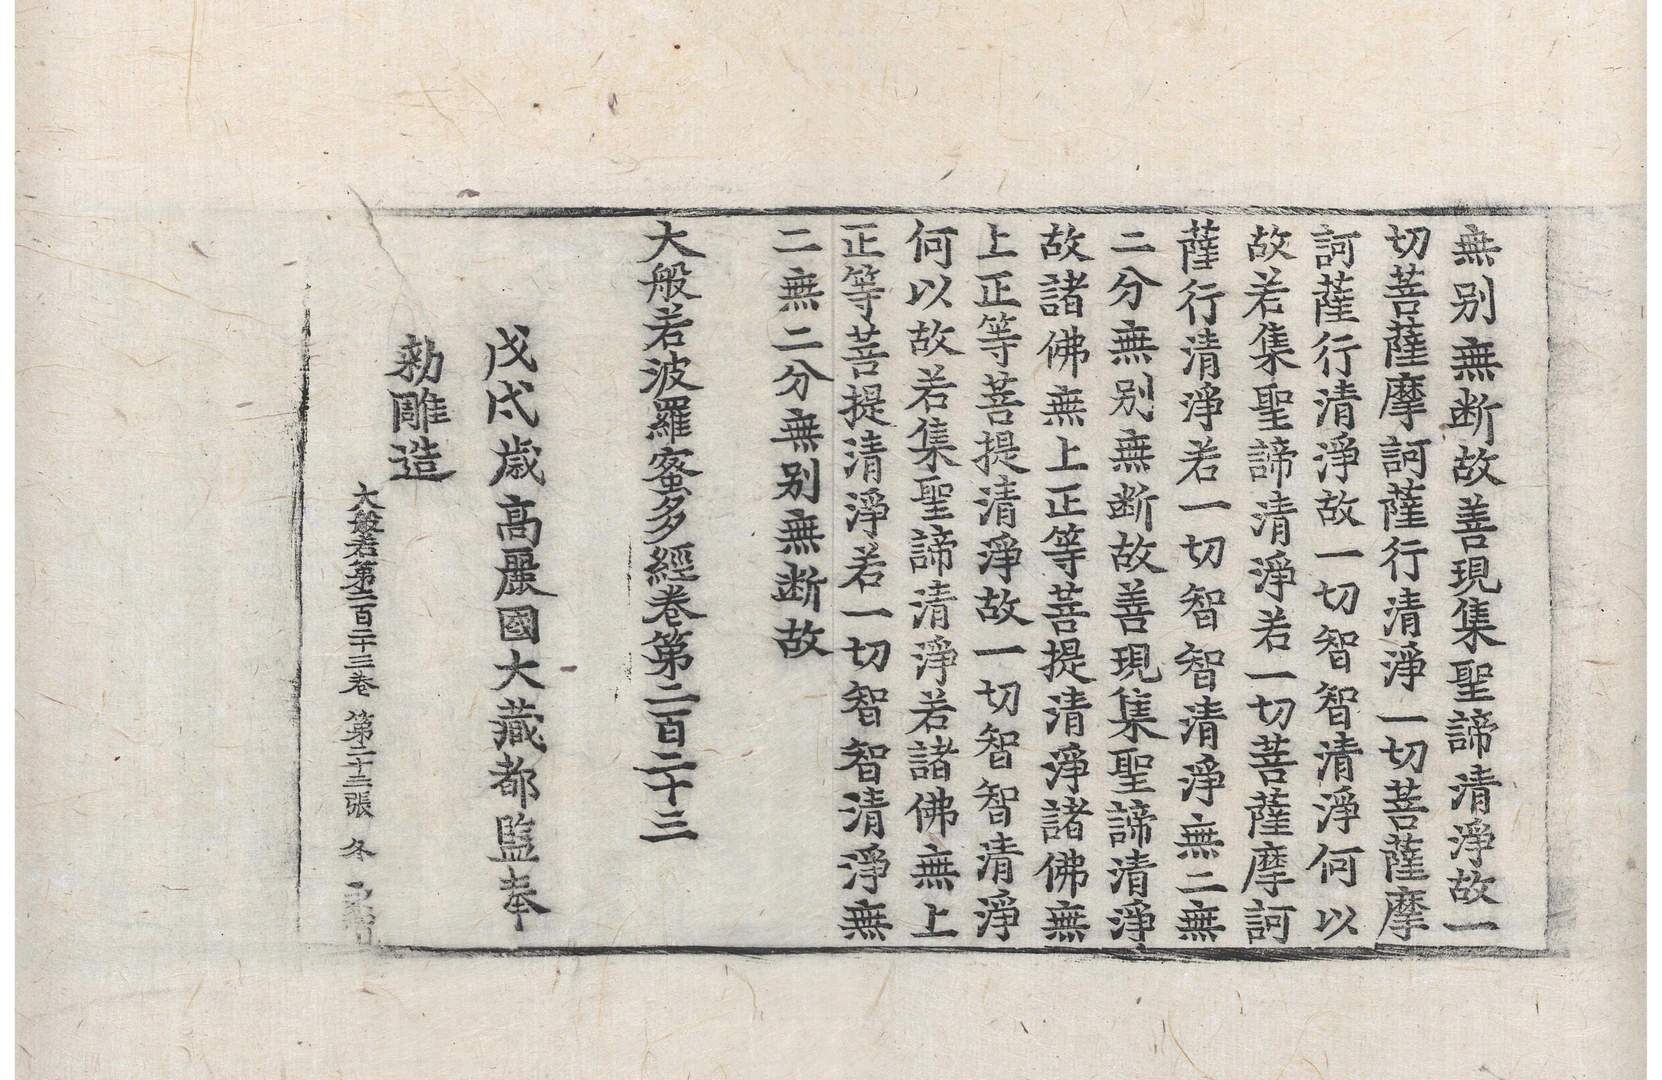 無別無断故善現集聖諦清淨故一
切菩薩摩訶薩行清淨一切菩薩摩
訶薩行清淨故一切智智清淨何以
故若集聖諦清淨若一切菩薩摩訶
薩行清淨若一切智智清淨無二無
二分無別無断故善現集聖諦清淨
故諸佛無上正等菩提清淨諸佛無
上正等菩提清淨故一切智智清淨
何以故若集聖諦清淨若諸佛無上
正等菩提清淨若一切智智清淨無
二無二分無別無断故
大般若波羅蜜多經卷第二百二十三
戊戌歲高麗國大藏都監奉
勑雕造
大般若第二百二十三卷 第二十二張 冬